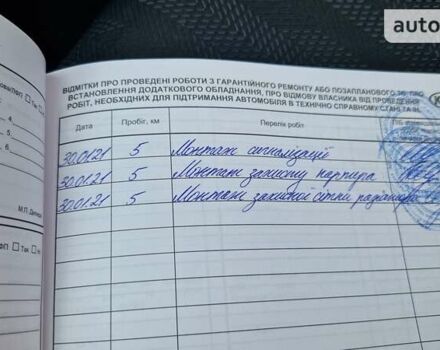 auto
ВІДМІТКИ ПРО ПРОВЕДЕНІ РОБОТИ З ГАРАНТІЙНОГО РЕМОНТУ АБО ПОЗАПЛАНОВОГО
ВСТАНОВЛЕННЯ ДОДАТКОВОГО ОБЛАДНАННЯ, ПРО ВІДМОВУ ВЛАСНИКА ВІД ПРОВЕДЕННЯ
РОБІТ, НЕОБХІДНИХ ДЛЯ ПІДТРИМАННЯ АВТОМОБІЛЯ В ТЕХНІЧНО СПРАВНОМУ СТАНІ
Дата Пробіг, км Перелік робіт
30.01.21 5 Монтаж сигналізації
30.01.21 5 Монтаж захисту картера
30.01.21 5 Монтаж захисної сітки радіатора
М.П. Дилера
Так